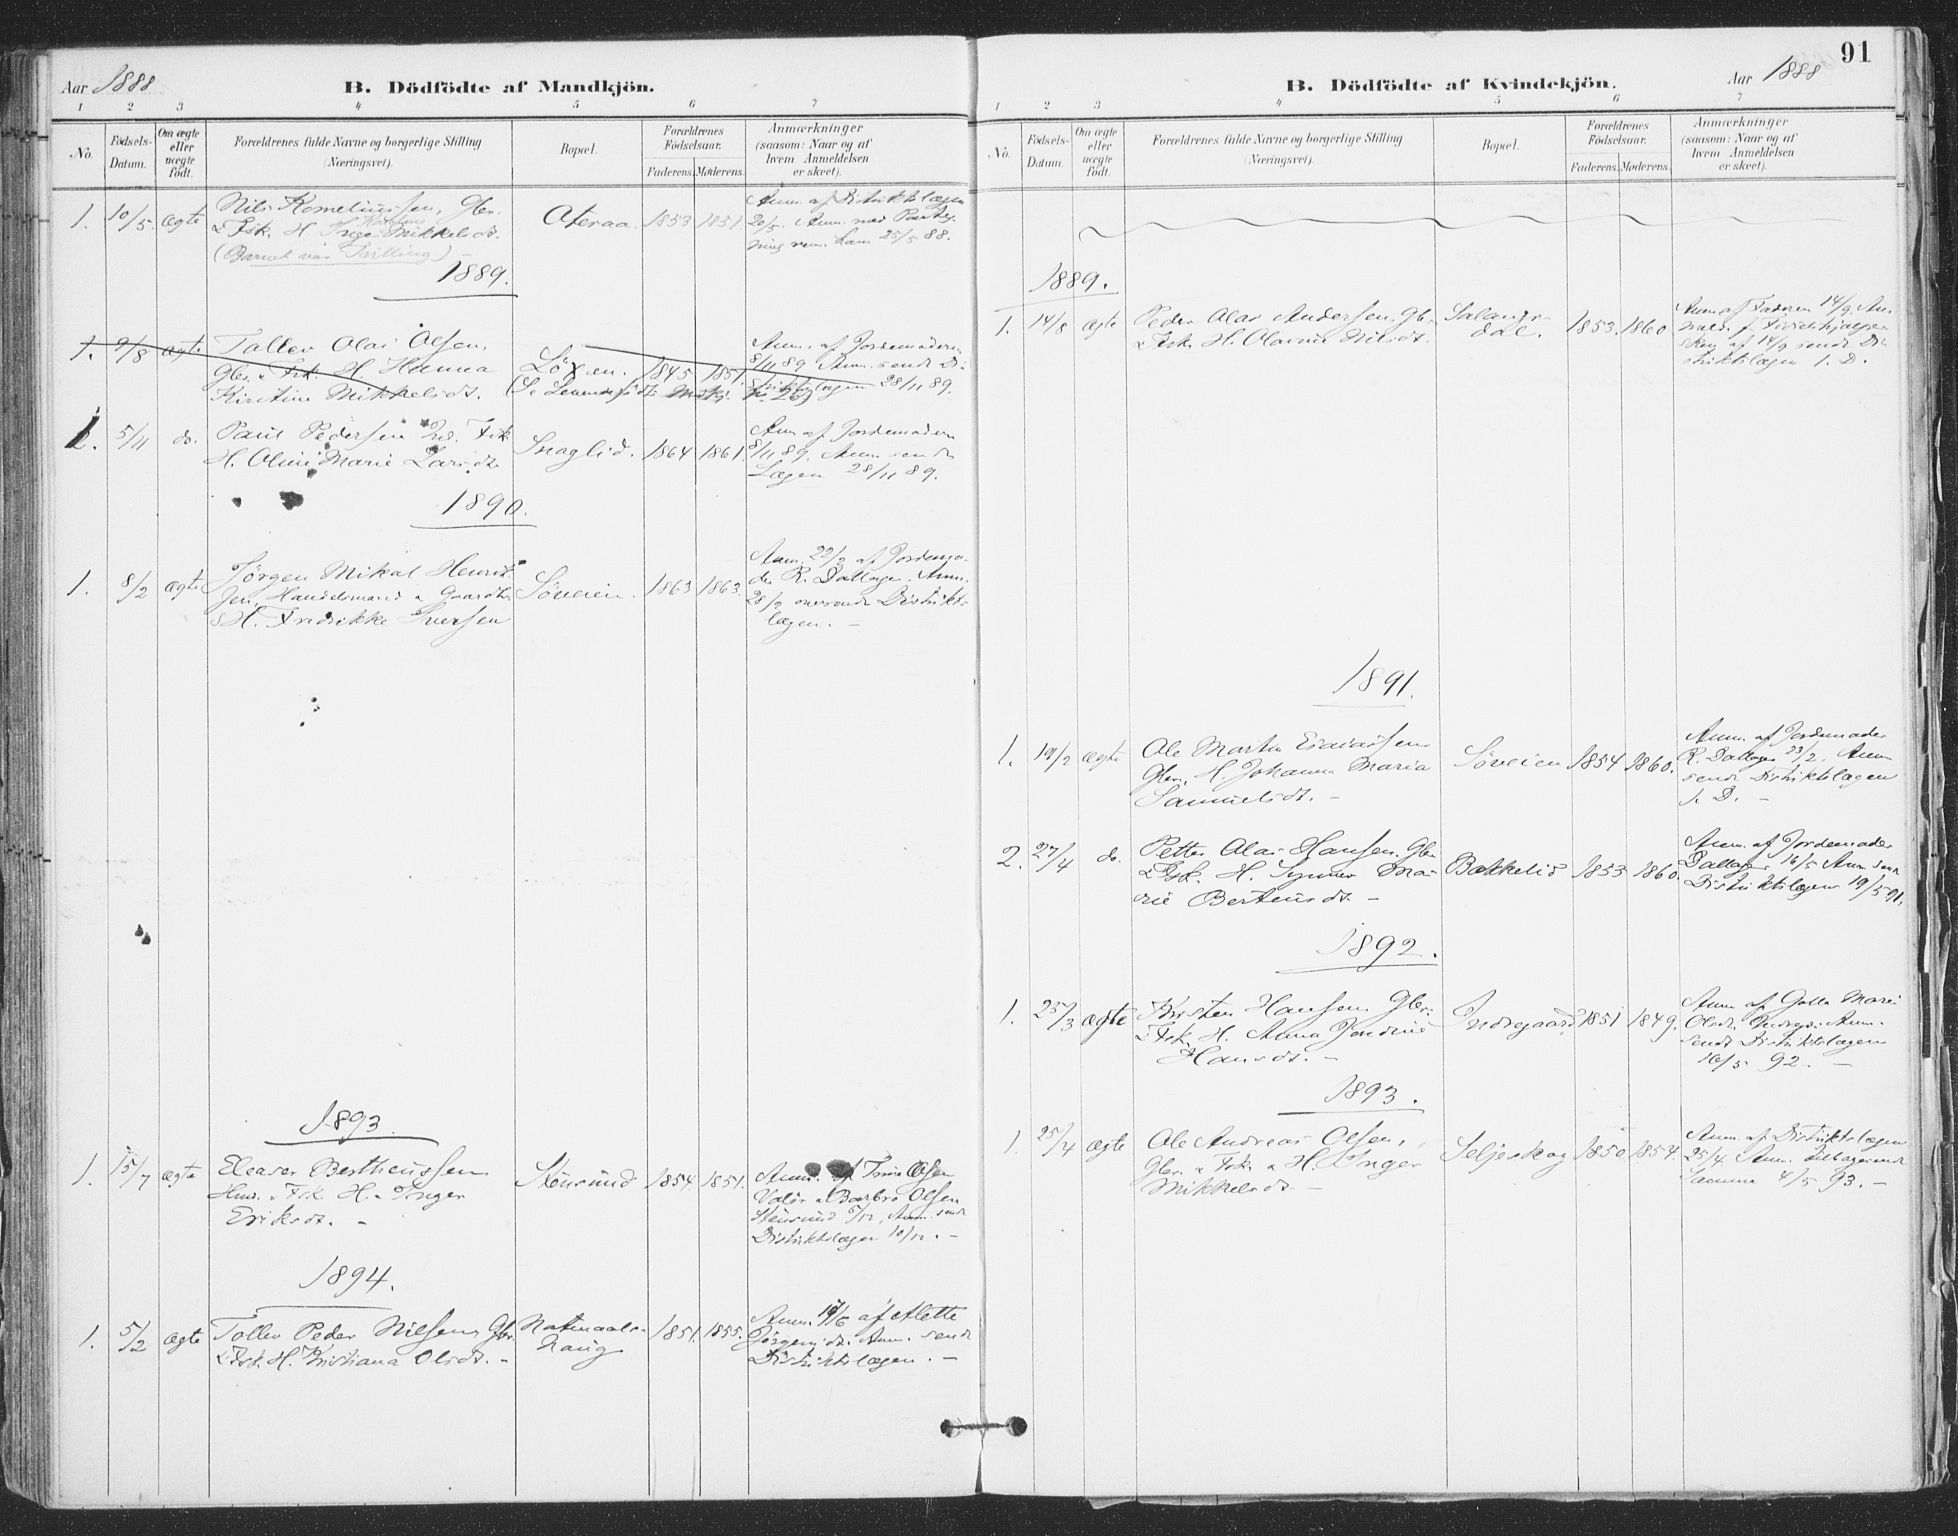 91
Aar 1888
B. Dödfödte af Mandkjön.
1 2 3 4 5 6 7
No.
Födsels-Datum.
Om ægte eller uægte födt.
Forældrenes fulde Navne og borgerlige Stilling (Næringsvei).
Bopæl.
Forældrenes Födselsaar.
Faderens. Møderens.
Anmærkninger (saasom: Naar og af hvem Anmeldelsen er skeet).
1. 10/5. ægte
Nils Korneliussen, Gbr.
& Fsk. H. Inger Mikkelsdt.
(Barnet var Tvilling)
1853 1851.
Anm. af Distriktslægen
20/5. Anm. med
25/5 88.
1889.
1. 9/8 ægte
Tollev Olai Olsen,
Gbr. & Fsk. H. Hanna
Kirstine Mikkelsdt.
1845 1851.
Anm. af Jordemoderen
8/11 89. Anm. sendt Di-
striktslægen 28/11 89.
2. 5/11 do.
Paul Pedersen Fsk
H. Oline Marie Larsdt.
1864 1861.
Anm. af Jordemoderen
8/11 89. Anm. sendt
Lægen 28/11 89.
1890.
1. 8/2 ægte
Jørgen Mikal Henrik-
sen, Handelsmand & Gaardbr.
H. Fredrikke Iversen
Söveien. 1863 1863.
Anm. 22/2 af Jordemo-
der R. Dallager. Anm.
28/2 oversendt Distrikts
lægen. –
1893.
1. 15/7 ægte
Eleaser Bertheussen
Hmd. & Fsk. H. Inger
Eriksdt. –
Stensund 1854. 1851.
Anm. af Trine Olsen
& Barbro Olsen
Stensund 5/12, Anm. sendt
Distriktslægen 10/12. –
1894.
1. 5/2 ægte
Tollev Peder Nilsen, Gbr.
& Fsk. H. Kristiana Olsdt. –
1851. 1855.
Anm. af Alette
Jörgensdt. Anm. sendt
Distriktslægen. –
B. Dödfödte af Kvindekjön.
Aar 1888
1 2 3 4 5 6 7
No.
Födsels-Datum.
Om ægte eller uægte födt.
Forældrenes fulde Navne og borgerlige Stilling (Næringsvei).
Bopæl.
Forældrenes Födselsaar.
Faderens. Møderens.
Anmærkninger (saasom: Naar og af hvem Anmeldelsen er skeet).
1889.
1. 14/8 ægte
Peder Olai Andersen, Gbr.
& Fsk. H. Olanna Nilsdt.
Salangs-
dal. 1853. 1860
Anm. af Faderen 14/9
14/9 sendt Di-
striktslægen s. D.
1891.
1. 19/2 ægte
Ole Martin Esaiassen
Gbr. H. Johanna Maria
Samuelsdt. –
Söveien 1854 1860.
Anm. af Jordemoder
R. Dallager 23/2. Anm
sendt Distriktslægen
s. D. –
2. 27/4 do.
Petter Olai Hansen, Gbr.
& Fsk. H. Synnøv Ma-
rie Berteusdt. –
Bakkelid 1853 1860.
Anm. af Jordemoder
Dallager 16/5 Anm. sendt
Distriktslægen 19/5 91.
1892.
1. 25/3 ægte
Kirsten Hansen, Gbr.
& Fsk. H. Anna Jondine
Hansdt. –
Indregaard 1851 1849.
Anm. af Golla Marie
Olsdt. Indreg. Anm.
sendt Distriktslægen
16/5 92. –
1893.
1. 25/4 ægte
Ole Andreas Olsen,
Gbr. & Fsk. & H. Inger
Mikkelsdt –
Seljeskog 1850 1854.
Anm. af Distriktslægen
25/4. Anm. tilbagesendt
Samme 4/5 93. –